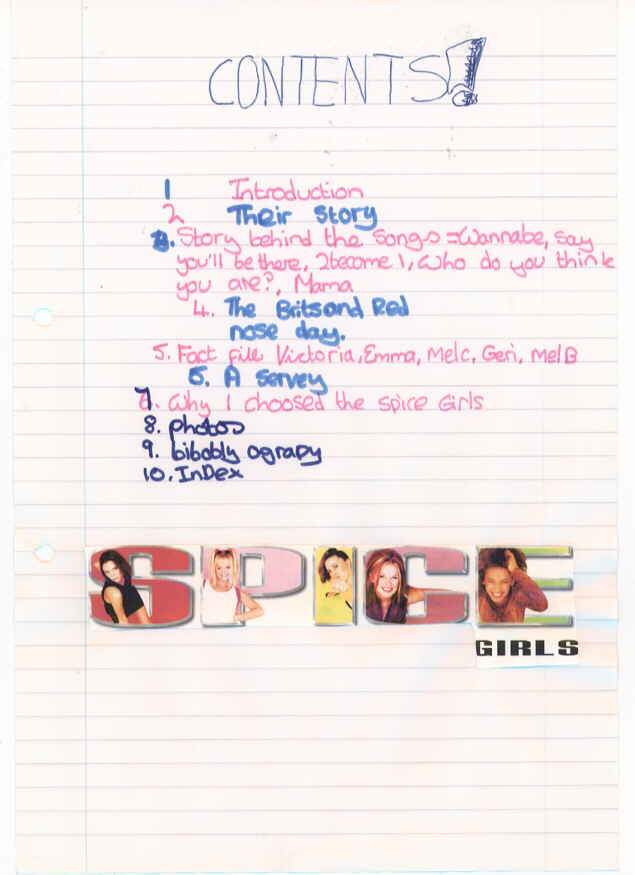 CONTENTS!
1 Introduction
2 Their story
3. Story behind the songs = Wannabe, say
you'll be there, 2 become 1, Who do you think
you are?, Mama
4. The Brits and Red
nose day.
5. Fact file Victoria, Emma, Melc, Geri, Mel B
6. A Servey
7. Why I choosed the spice Girls
8. photos
9. bibobly ograpy
10. InDex
SPICE
GIRLS